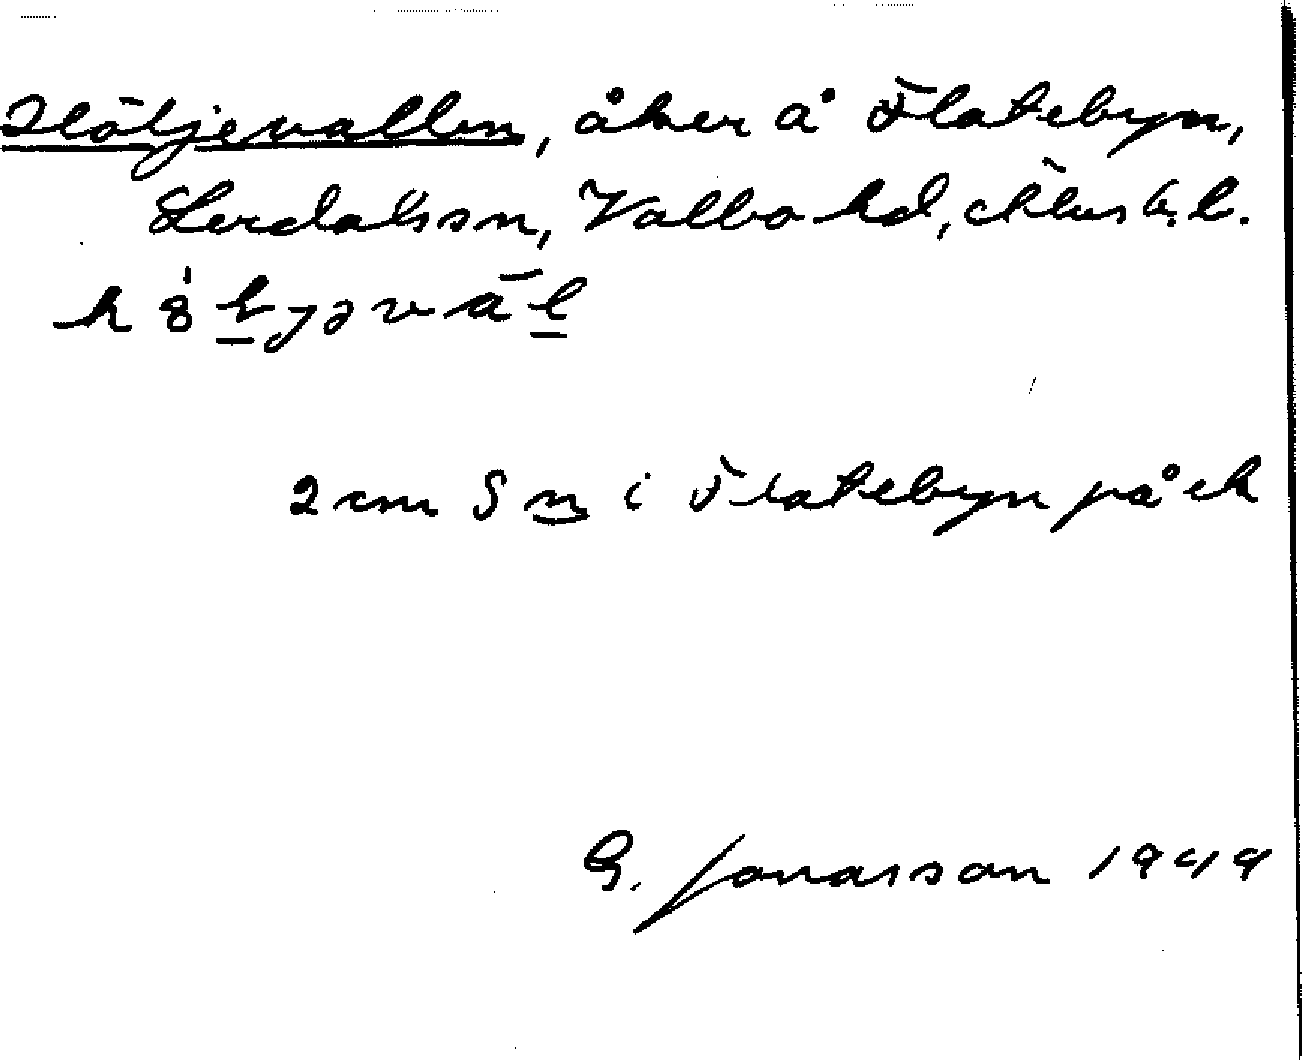 Höljevallen, åker å Flatebyn,
Lerdals sn, Valbo hd, Älvsb. l.
h 8̍ l̲ j ə v ā l̲
2 cm S n i Flatebyn på ek
G. Jonasson 1949